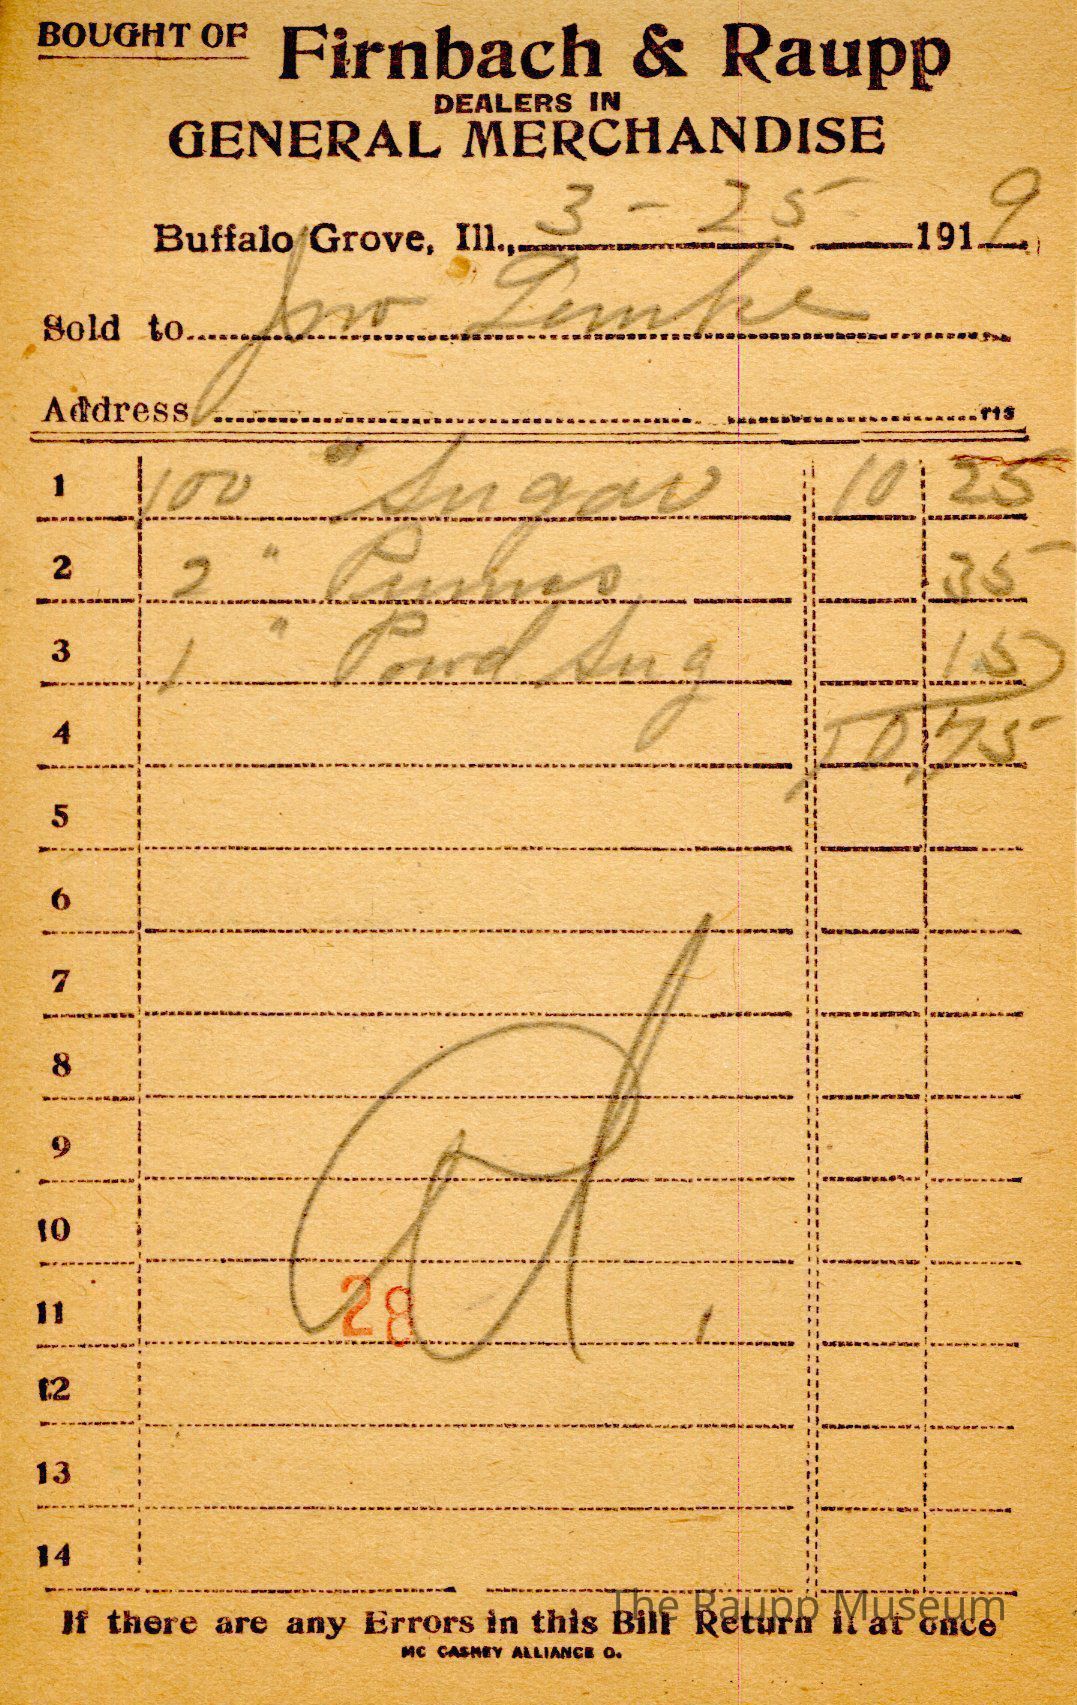 BOUGHT OF Firnbach & Raupp
DEALERS IN
GENERAL MERCHANDISE
Buffalo Grove, Ill., 3 - 25 1919
Sold to Jno Lemke
Address
1 100 " Sugar 10 25
2 2 " Prunes 35
3 1 " Powd Sug 15
4 10.75
5
6
7
8
9
10
11 28
12
13
14
The Raupp Museum
If there are any Errors in this Bill Return it at once
MC CASKEY ALLIANCE O.